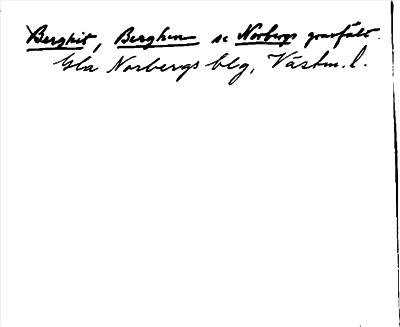 Berghit, Berghen se Norbergs gruvfält.
Gla Norbergs blg, Västm. l.